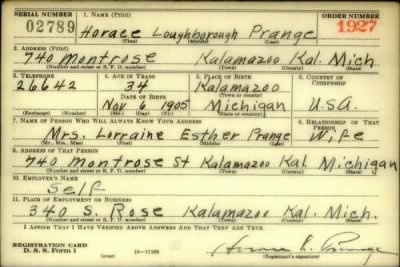 SERIAL NUMBER 1. NAME (Print) ORDER NUMBER
02789 Horace Loughborough Prange 1927
(First) (Middle) (Last)
2. ADDRESS (Print)
740 Montrose Kalamazoo Kal. Mich.
(Number and street or R. F. D. number) (Town) (County) (State)
3. TELEPHONE 4. AGE IN YEARS 5. PLACE OF BIRTH 6. COUNTRY OF CITIZENSHIP
26642 34 Kalamazoo
DATE OF BIRTH (Town or county)
Nov 6 1905 Michigan U.S.A.
(Exchange) (Number) (Mo.) (Day) (Yr.) (State or country)
7. NAME OF PERSON WHO WILL ALWAYS KNOW YOUR ADDRESS 8. RELATIONSHIP OF THAT PERSON
Mrs. Lorraine Esther Prange Wife
(Mr., Mrs., Miss) (First) (Middle) (Last)
9. ADDRESS OF THAT PERSON
740 Montrose St Kalamazoo Kal Michigan
(Number and street or R. F. D. number) (Town) (County) (State)
10. EMPLOYER'S NAME
Self
11. PLACE OF EMPLOYMENT OR BUSINESS
340 S. Rose Kalamazoo Kal. Mich.
(Number and street or R. F. D. number) (Town) (County) (State)
I AFFIRM THAT I HAVE VERIFIED ABOVE ANSWERS AND THAT THEY ARE TRUE.
REGISTRATION CARD
D. S. S. Form 1 16-17105 Horace L. Prange
(Registrant's signature)